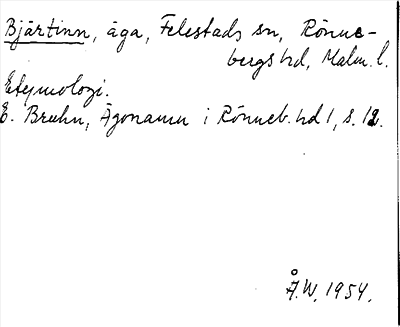 Bjärtinn, äga, Felestads sn, Rönne-
bergs hd, Malm. l.
Etymologi.
E. Bruhn, Ägonamn i Rönneb. hd 1, s. 12.
Å.W. 1954.